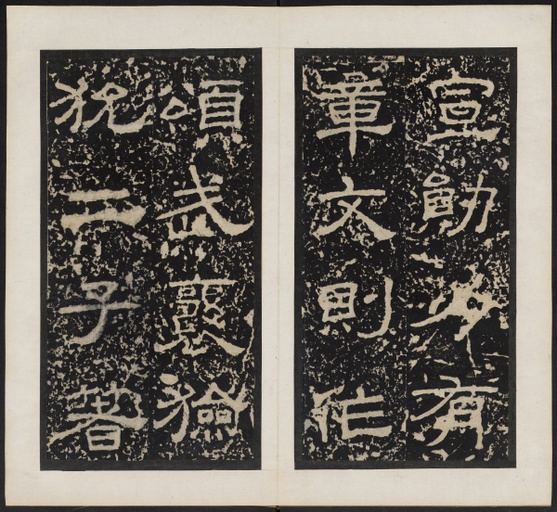 宣勛必有
章文則作
頌武襄獫
狁二子著